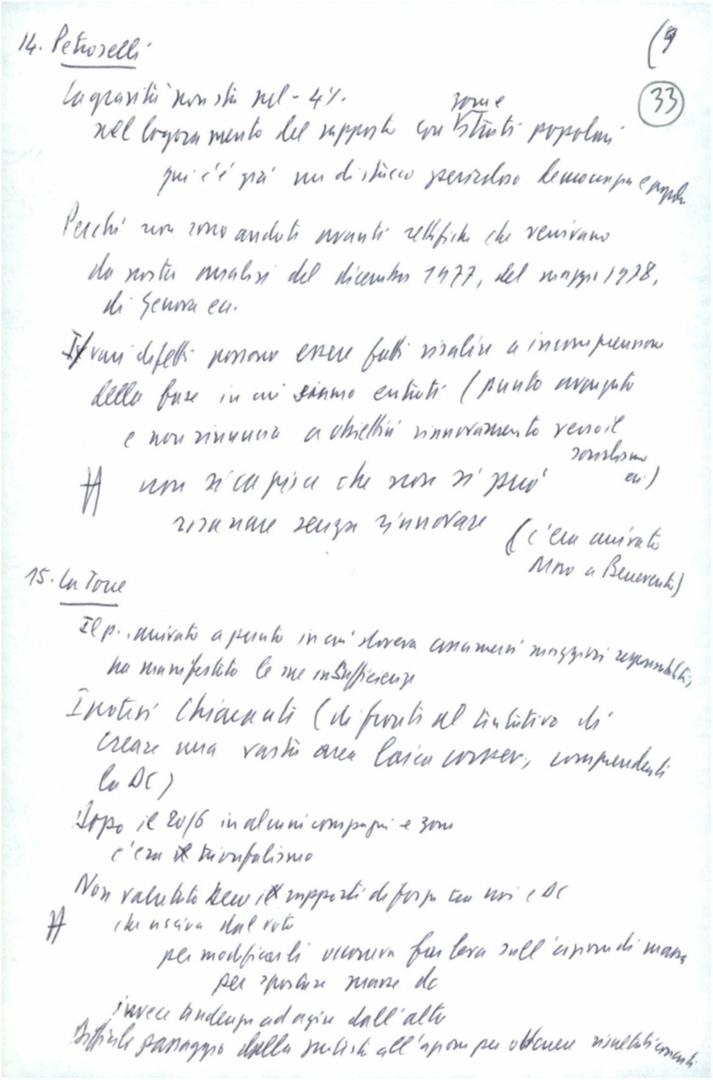 14. Petroselli
(9
33
La gravità non sta nel - 4%.
nel logoramento del rapporto con zone strati popolari
qui c'è già un distacco pericoloso democrazia e popolo
Perché non sono andati avanti rettifiche che venivano
da nostra analisi del dicembre 1977, del maggio 1978,
di Genova ecc.
I vari difetti possono essere fatti risalire a incomprensione
della fase in cui siamo entrati (punto avanzato
e non rinuncia a obiettivi rinnovamento verso il
socialismo
ecc)
non si capisce che non si può
risanare senza rinnovare (c'era arrivato
Moro a Benevento)
15. La Torre
Il p. arrivato a punto in cui doveva assumersi maggiori responsabilità,
ha manifestato le sue insufficienze
Ipotesi Chiaromonti (di fronte al tentativo di
creare una vasta area laico conser., comprendente
la DC)
Dopo il 20/6 in alcuni compagni e zone
c'era il trionfalismo
Non valutato bene il rapporti di forza tra noi e DC
che usciva dal voto
per modificarli occorreva far leva sull'azione di massa
per spostare masse dc
invece tendenza ad agire dall'alto
Difficile passaggio dalla all'azione per ottenere risultati